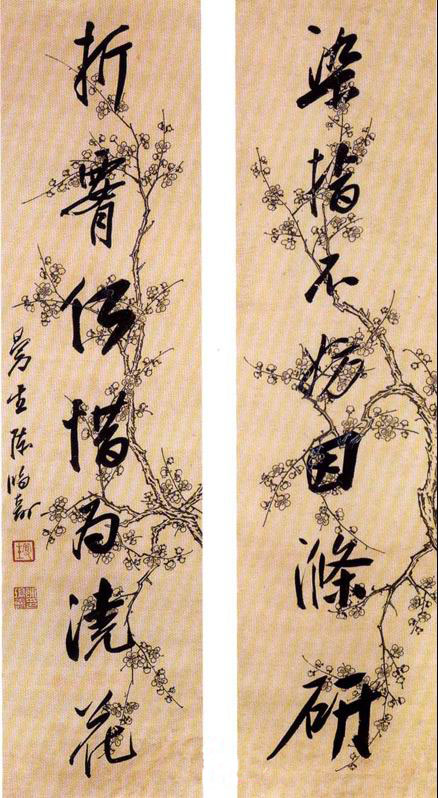 染指不妨因滌研
折腰何惜為澆花
曼生陳鴻壽